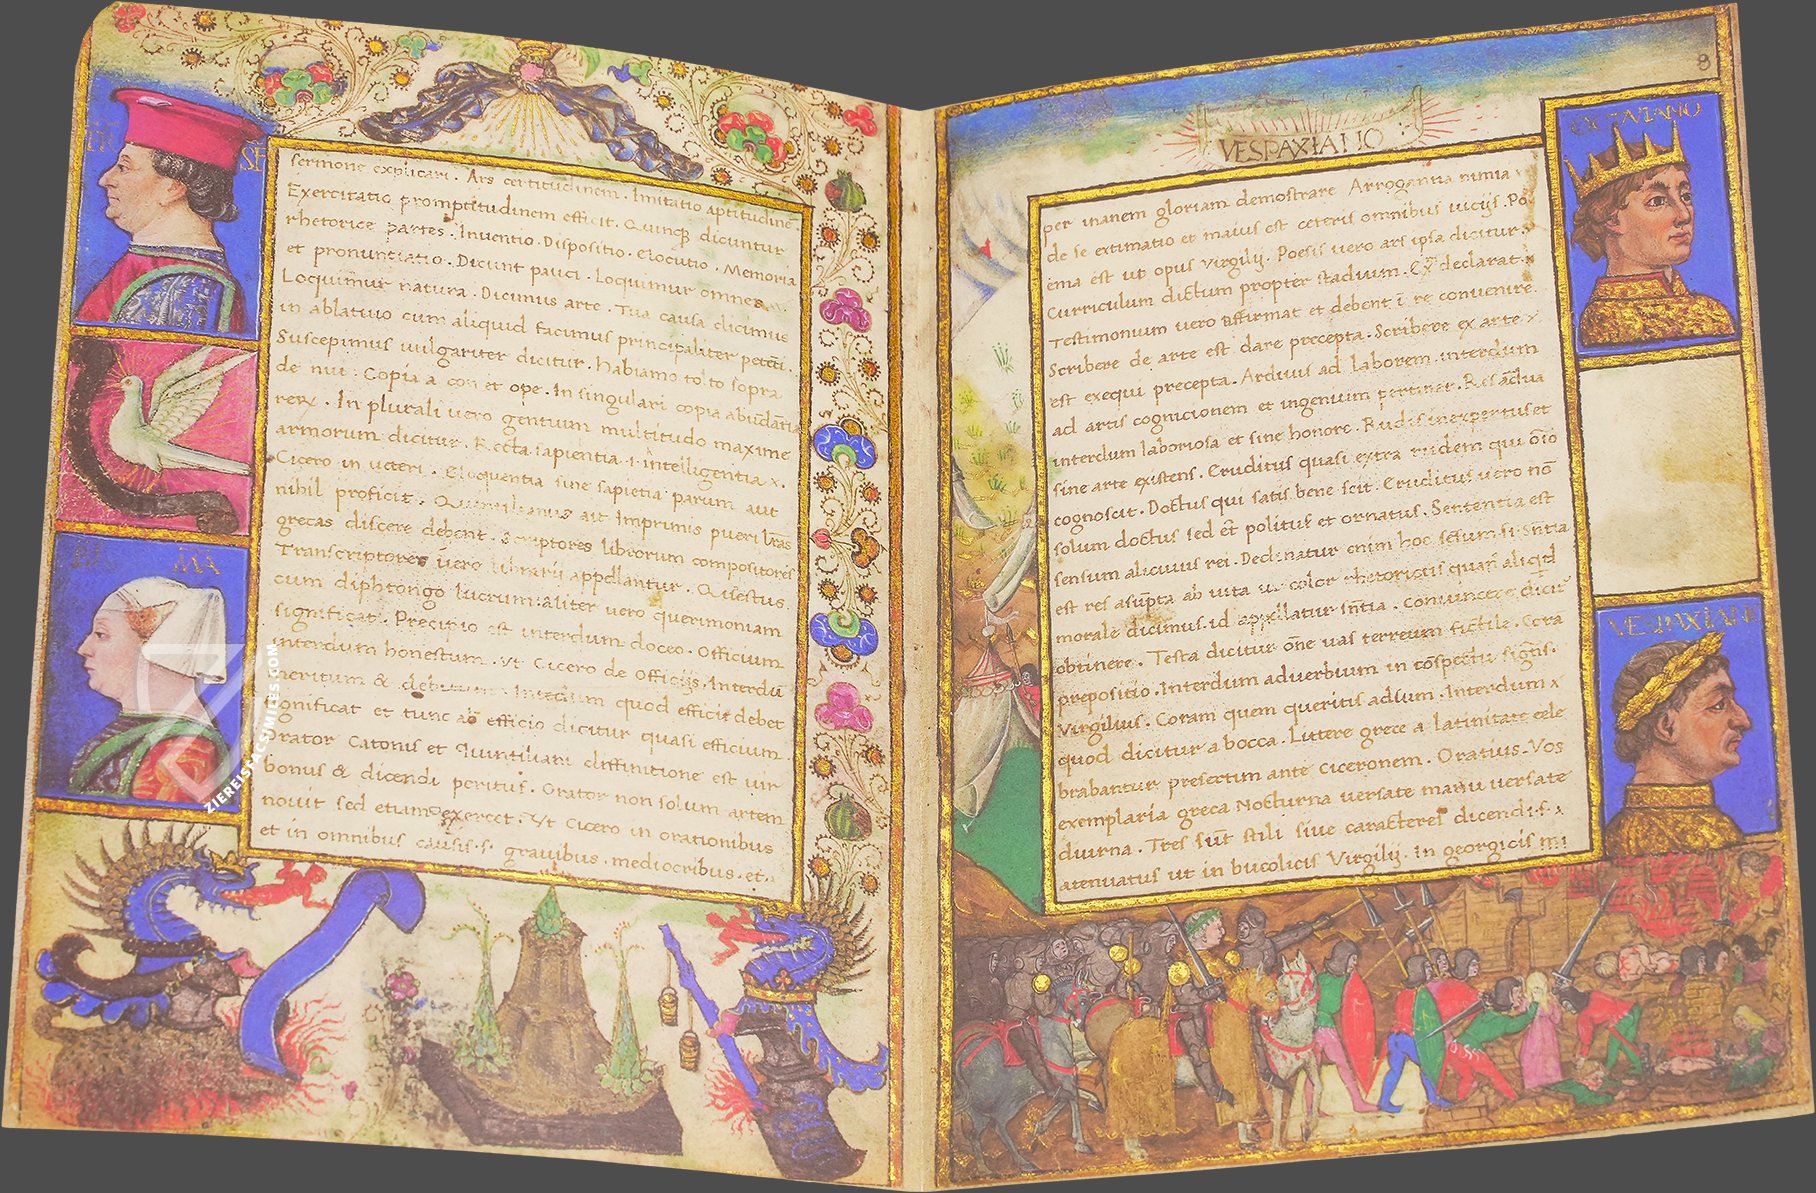 SF
sermone explicari. Ars certitudinem. Imitatio aptitudinē
Exercitatio promptitudinem efficit. Quinqȝ dicuntur
rhetorice partes. Inventio. Dispositio. Elocutio. Memoria
et pronuntiatio. Dicunt pauci. Loquimur omnes
Loquimur natura. Dicimus arte. Tua causa dicimus
in ablativo cum aliquid facimus principaliter
Suscepimus vulgariter dicitur. Habiamo tolto sopra
de nui. Copia a con et ope. In singulari copia abūdātia
rerꝝ. In plurali vero gentium multitudo maxime
armorum dicitur. Recta sapientia. i. intelligentia
Cicero in veteri. Eloquentia sine sapiētia parum aut
nihil proficit. Quintilianus ait Imprimis pueri lr̄as
grecas discere debent. Scriptores librorum compositores
Transcriptores vero librarii appellantur. Questus
cum diphtongo lucrum: aliter vero querimoniam
significat. Precipio est interdum doceo. Officium
interdum honestum. Vt Cicero de Officijs. Interdū
meritum & debitum. Interdum quod efficit debet
significat et tunc ab efficio dicitur quasi efficium
Orator Catonis et Quintiliani diffinitione est vir
bonus & dicendi peritus. Orator non solum artem
novit sed etiam exercet. Vt Cicero in orationibus
et in omnibus causis. s. gravibus. mediocribus. et
MA
8
VESPAXIANO
OCTAVIANO
per inanem gloriam demostrare Arrogantia nimia
de se extimatio et maius est ceteris omnibus vicijs. Po
ema est ut opus Virgilij. Poesis vero ars ipsa dicitur.
Curriculum dictum propter stadium. declarat.
Testimonium vero affirmat et debent ī re convenire.
Scribere de arte est dare precepta. Scribere ex arte
est exequi precepta. Arduus ad laborem interdum
ad artis cognicionem et ingenium pertinar. Res ardua
interdum laboriosa et sine honore. Rudis inexpertus et
sine arte existens. Eruditus quasi extra rudem qui oīo
cognoscit. Doctus qui satis bene scit. Eruditus vero nō
solum doctus sed et politus et ornatus. Sententia est
sensum alicuius rei. Declinatur enim hoc
est res asūpta ab vita vel color rhetoricus quam aliqid
morale dicimus. id appellatur sn̄tia. Convincere dicit̄
obtinere. Testa dicitur om̄e vas terreum fictile. Cora
prepositio. Interdum adverbium in cōspectu signīs.
Virgilius. Coram quem queritis adsum. Interdum
quod dicitur a bocca. Littere grece a latinitate cele
brabantur presertim ante Ciceronem. Oratius. Vos
exemplaria greca Nocturna versate manu versate
diurna. Tres sūt stili sive caracteres dicendi. s.
atenuatus ut in bucolicis Virgilij. In georgicis mi
VESPAXIANO
ZIEREISFACSIMILES.COM